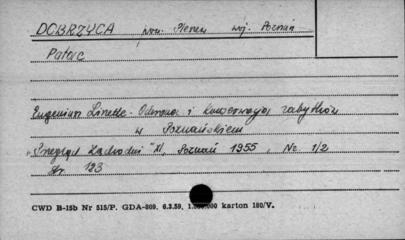 DOBRZYCA pow. Pleszew woj. Poznań
Pałac
Eugeniusz Linette - Odnowa i konserwacja zabytków
w Poznańskiem
"Przegląd Zachodni" XI, Poznań 1955, Nr 1/2
str. 123
CWD B-15b Nr 515/P. GDA-809. 6.3.59. karton 180/V.